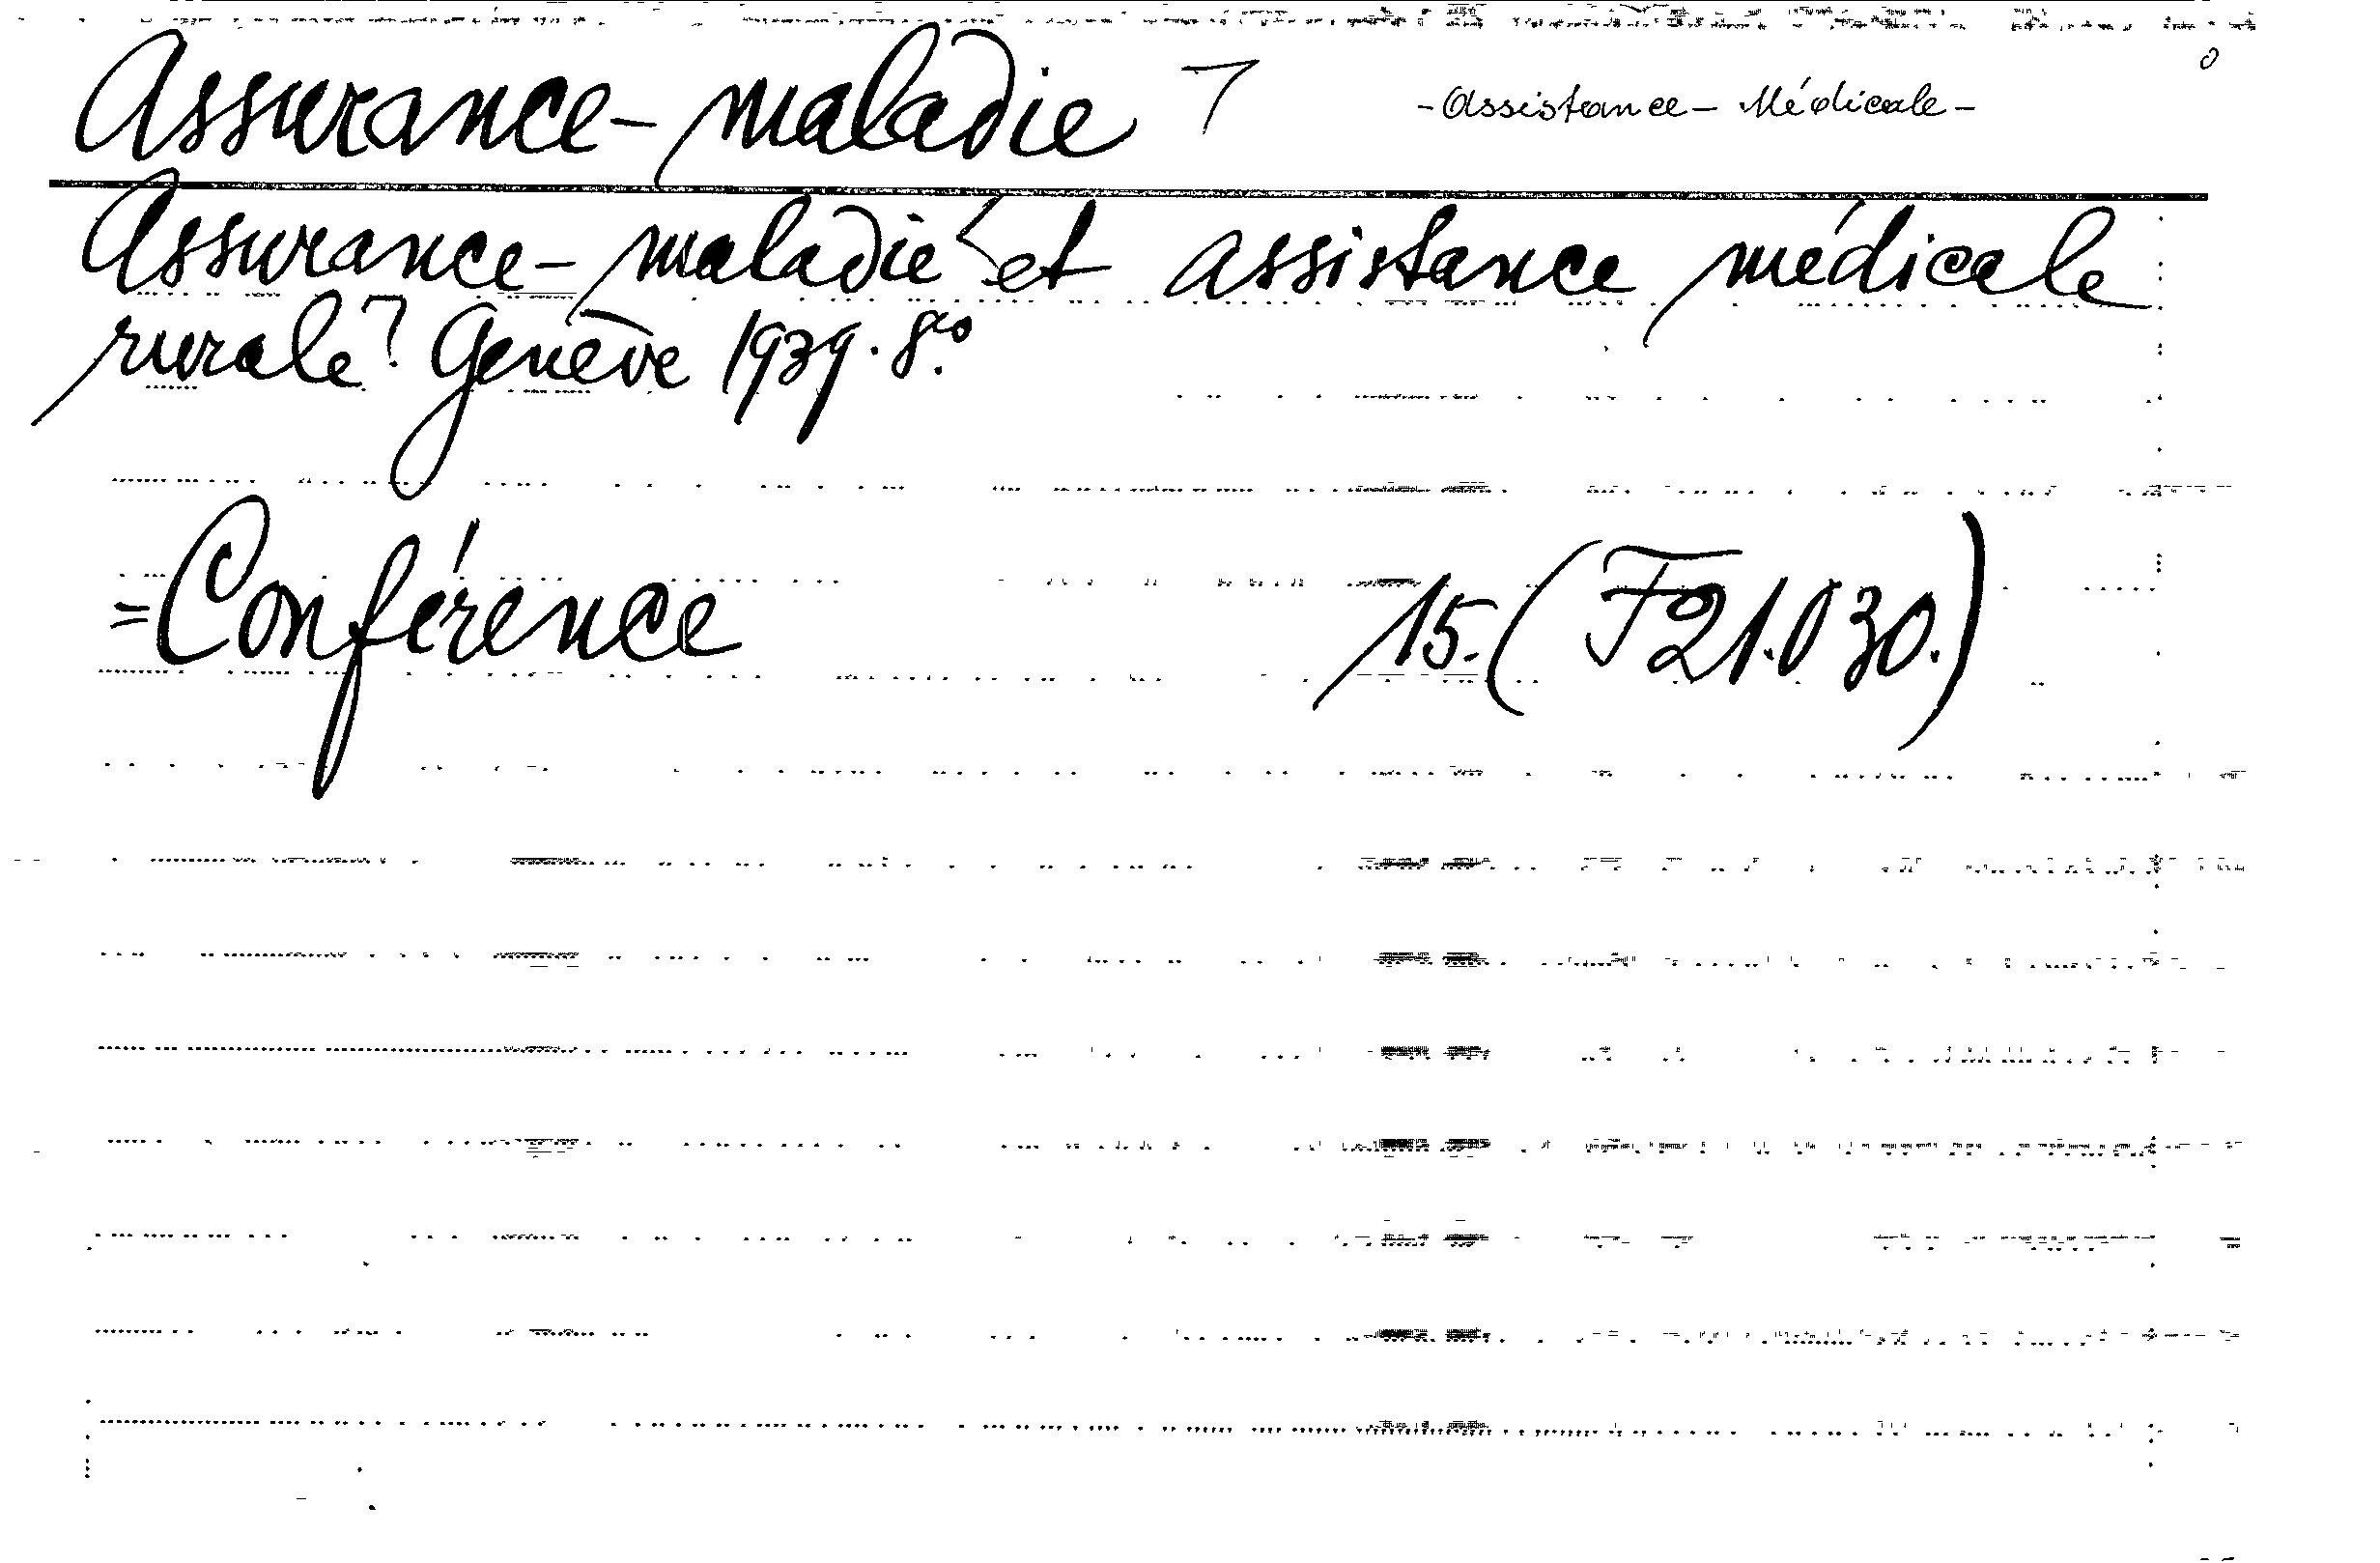 Assurance-maladie ⁊ -Assistance- Médicale-
Assurance-maladie et assistance médicale
rurale⁊ Genève 1939. 8°.
=Conférence 15.(F21.030.)